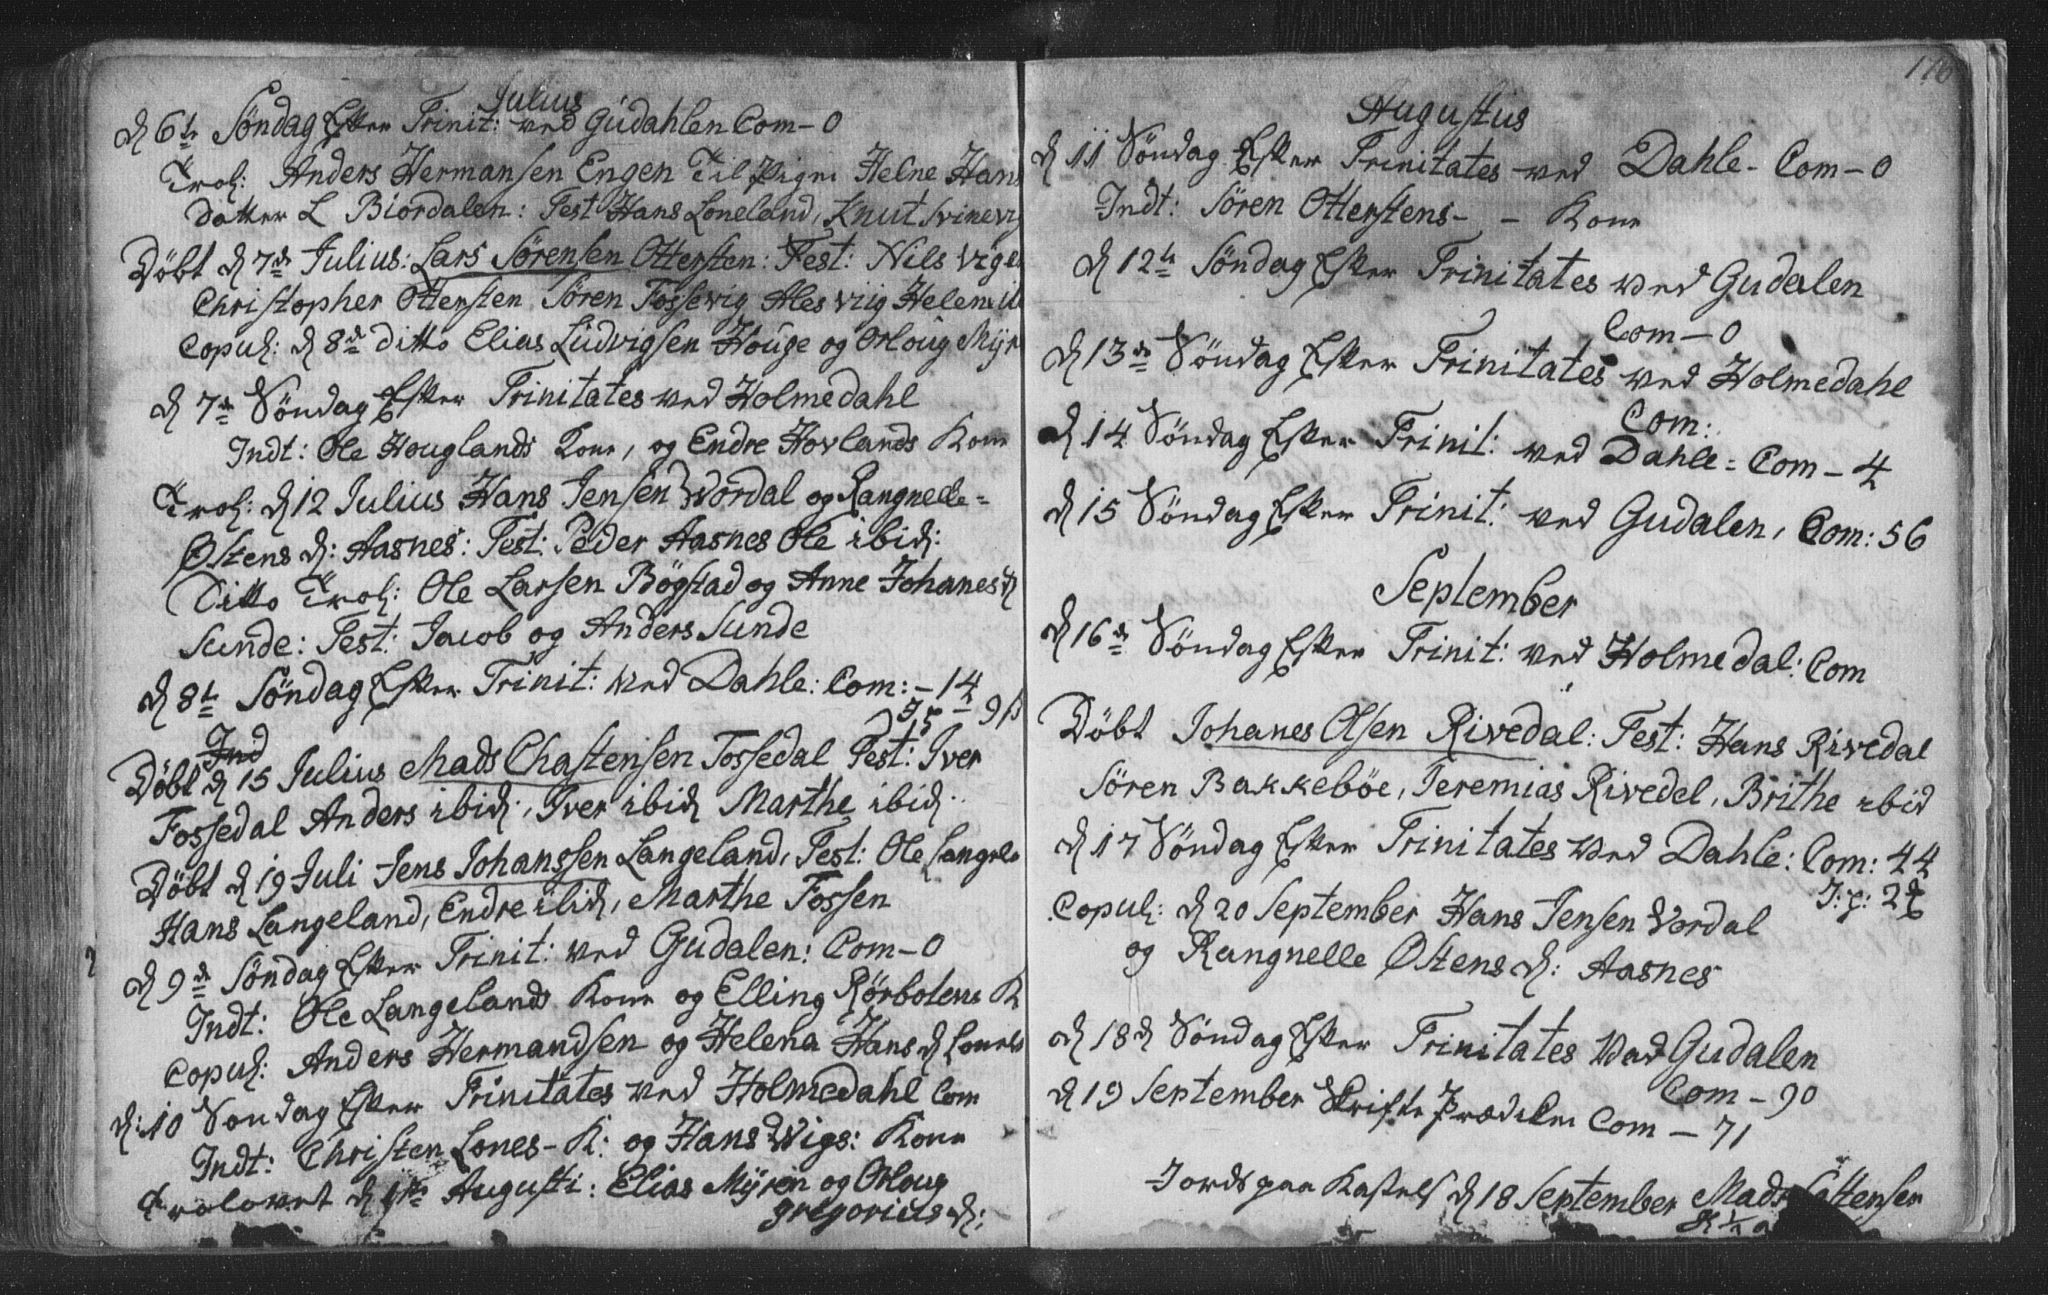 Julius
d 6te Søndag Efter Trinit: ved Gudahlen Com – 0
Trol: Anders Hermansen Engen Til Pigen Helne Hans
Datter L Biordalen: Test Hans Loneland, Knut Svinevig
Döbt d 7de Julius: Lars Sørensen Ottersten: Test: Nils Vige
Christopher Ottersten Sören Fossevig Ales Viig Helem
Copul: d 8de Ditto Elias Ludvigsen Houge og Orloug Myr
d 7de Søndag Efter Trinitates ved Holmedahl
Indt: Ole Houglands Kone, og Endre Hovlands Kone
Trol: d 12 Julius Hans Jensen Wordal og Rangnelle=
Østens d: Aasnes: Test: Peder Aasnes Ole ibid:
Ditto Trol: Ole Larsen Bögstad og Anne Johanes d
Sunde: Test: Jacob og Anders Sunde
d 8te Søndag Efter Trinit: ved Dahle: Com: – 14
Ind
Döbt d 15 Julius Mads Chastensen Fossedal Test: Iver
Fossedal Anders ibid:, Iver ibid Marthe ibid:
Döbt d 19 Juli Jens Johanssen Langeland, Test: Ole Langel
Hans Langeland, Endre ibid, Marthe Fossen
d 9de Søndag Efter Trinit: ved Gudalen: Com – 0
Indt: Ole Langelands Kone og Elling Rörbotens K
Copul: Anders Hermandsen og Helena Hans d Lonel
d: 10 Søndag Efter Trinitates ved Holmedahl Com
Indt: Christen Lones – K: og Hans Wigs: Kone
Trolovet d 1te Augusti: Elias Myren og Orloug
gregorius d:
176
Augustus
d 11 Søndag Efter Trinitates ved Dahle – Com – 0
Indt: Sören Otterstens – – Kone
d 12te Søndag Efter Trinitates ved Gudalen
Com – 0
d 13de Søndag Efter Trinitates ved Holmedahl
Com:
d 14 Søndag Efter Trinit: ved Dahle = Com – 4
d 15 Søndag Efter Trinit: ved Gudalen, Com: 56
September
d 16de Søndag Efter Trinit: ved Holmedal: Com
Döbt Johanes Olsen Rivedal: Test: Hans Rivedal
Sören Bakkebøe, Jeremias Rivedel, Brithe ibid
d 17 Søndag Efter Trinitates ved Dahle: Com: 44
Copul: d 20 September Hans Jensen Vordal
og Rangnelle Østens d: Aasnes
d 18d Søndag Efter Trinitates ved Gudalen
Com – 90
d 19 September Skrifte Prædiken Com – 71
Jordspaa Kastelse d 18 September Mads Castensen